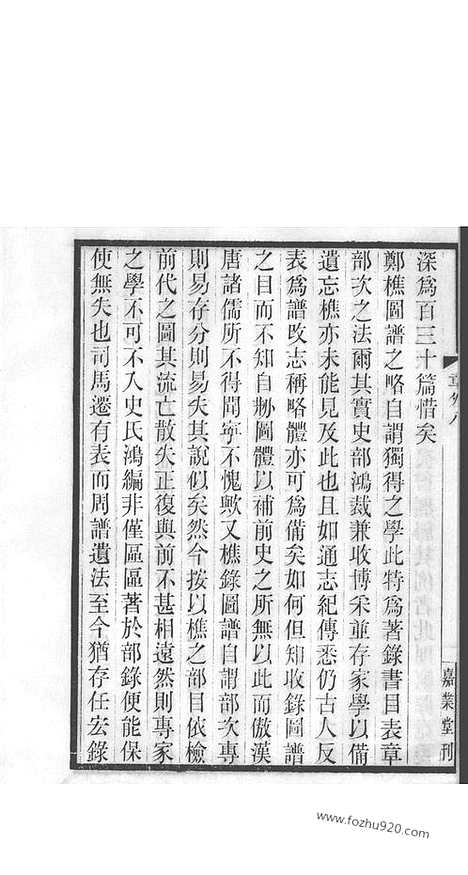 深爲百三十篇惜矣
鄭樵圖譜之略自謂獨得之學此特爲著錄書目表章
部次之法爾其實史部鴻裁兼收博采並存家學以備
遺忘樵亦未能見及此也且如通志紀傳悉仍古人反
表爲譜改志稱略體亦可爲備矣如何但知收錄圖譜
之目而不知自刱圖體以補前史之所無以此而傲漢
唐諸儒所不得聞寧不愧歟又樵錄圖譜自謂部次專
則易存分則易失其說似矣然今按以樵之部目依檢
前代之圖其流亡散失正復與前不甚相遠然則專家
之學不可不入史氏鴻編非僅區區著於部錄便能保
使無失也司馬遷有表而周譜遺法至今猶存任宏錄
嘉業堂刊
www.fozhu920.com